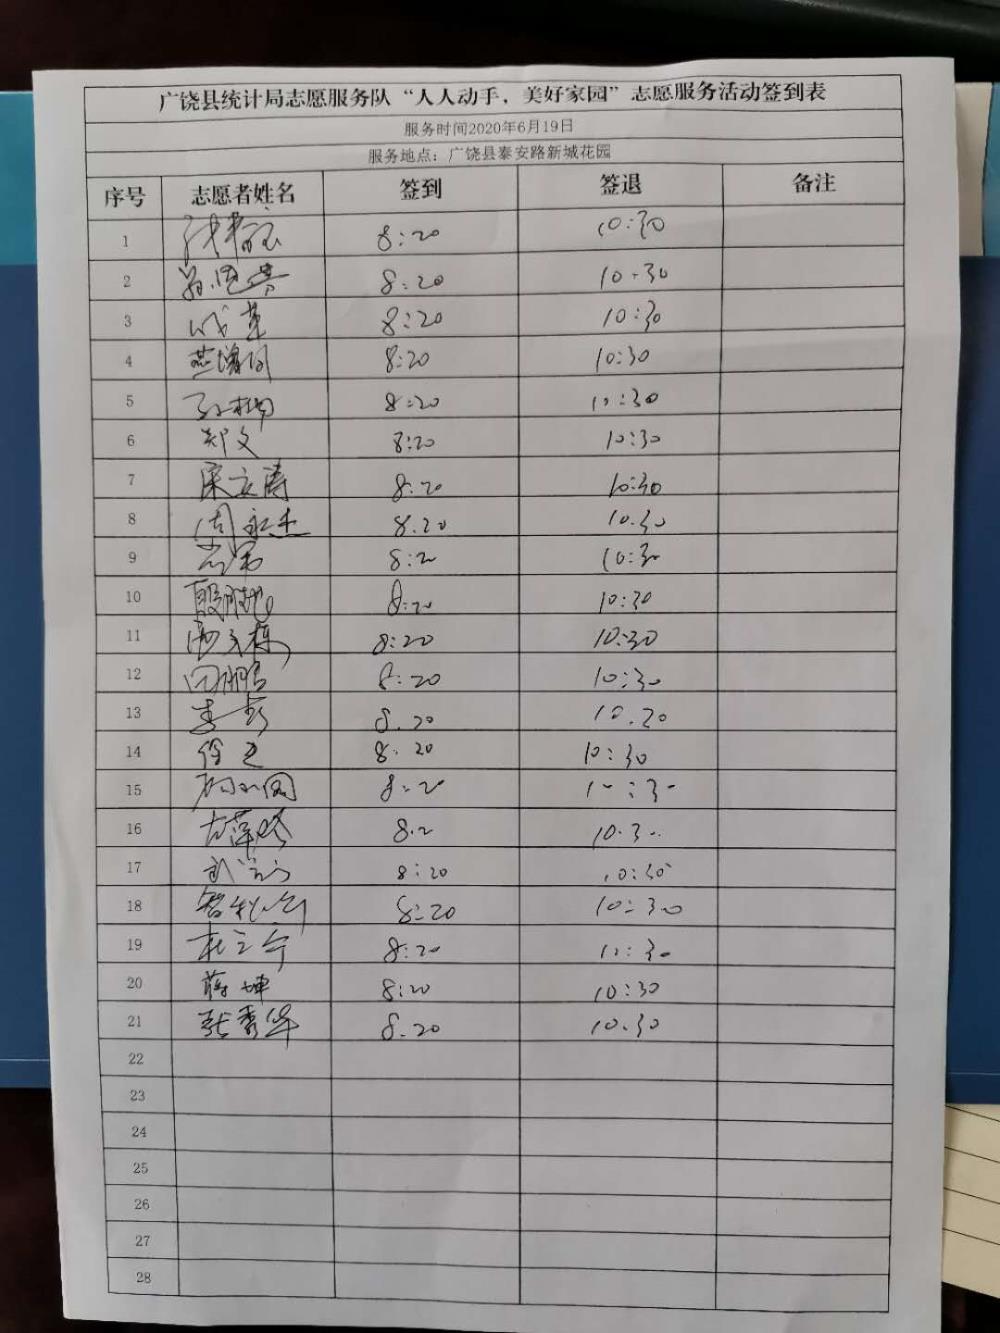 广饶县统计局志愿服务队“人人动手，美好家园”志愿服务活动签到表
服务时间2020年6月19日
服务地点：广饶县泰安路新城花园
序号 志愿者姓名 签到 签退 备注
1 8:20 10:30
2 8:20 10:30
3 8:20 10:30
4 燕增同 8:20 10:30
5 孙杨 8:20 10:30
6 郑文 8:20 10:30
7 宋文涛 8:20 10:30
8 周永杰 8.20 10.30
9 8:20 10:30
10 8:20 10:30
11 8:20 10:30
12 田鹏 8:20 10:30
13 李彭 8.20 10.20
14 徐 8.20 10:30
15 8:20 10:30
16 8.2 10.30
17 8:20 10:30
18 8:20 10:30
19 杜立令 8:20 10:30
20 蒋坤 8:20 10:30
21 张秀华 8.20 10.30
22
23
24
25
26
27
28